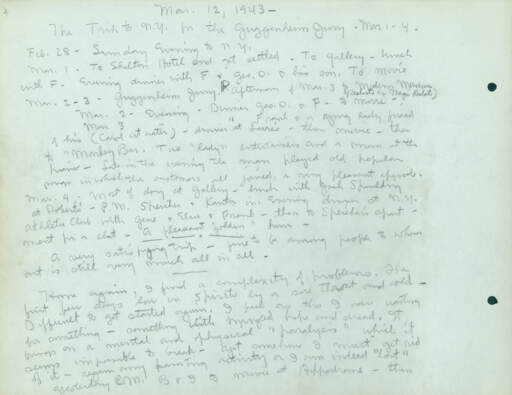 Mar. 12, 1943 -
The Trip to N.Y. for the Guggenheim Jury - Mar. 1 - 4.
Feb. 28 - Sunday Evening to N.Y.
Mar. 1 - To Shelton Hotel and get settled - To gallery - lunch
with F. - Evening dinner with F + Geo. O. + his son. To Movie
Mar. 2 - 3 - Guggenheim Jury, Afternoon of Mar. 3 to Modern Museum
Mar. 2 - Evening - Dinner Geo. O + F - to movie -
Mar 3 " " Frank + a young lady friend
of his (Carol at water) - dinner at - then movie - then
to "Monkey Bar. Two "lady" entertainers and a man at the
piano - Late in the evening the man played old popular
songs in which the customers all joined, a very pleasant episode.
Mar. 4 - Most of day at Gallery - lunch with Spaulding
at Roberts - P.M. Speicher + in. Evening dinner at N.Y.
Athletic Club with Gene + Elsie + - then to Speichers apart-
ment for a chat - A pleasant "golden" hour -
A very satisfying trip - fine to be among people to whom
art is still very much all in all -
Home again, I find a complexity of problems. The
first few days low in spirits by a sore throat and cold -
Difficult to get started again. I feel as tho I were waiting
for something - something with mingled hope and dread. It
brings on a mental and physical "paralysis" which it
seems impossible to break - But somehow I must get rid
of it - regain my painting activity or I am indeed "lost"
Yesterday P.M. B + I to movie at Hippodrome - then